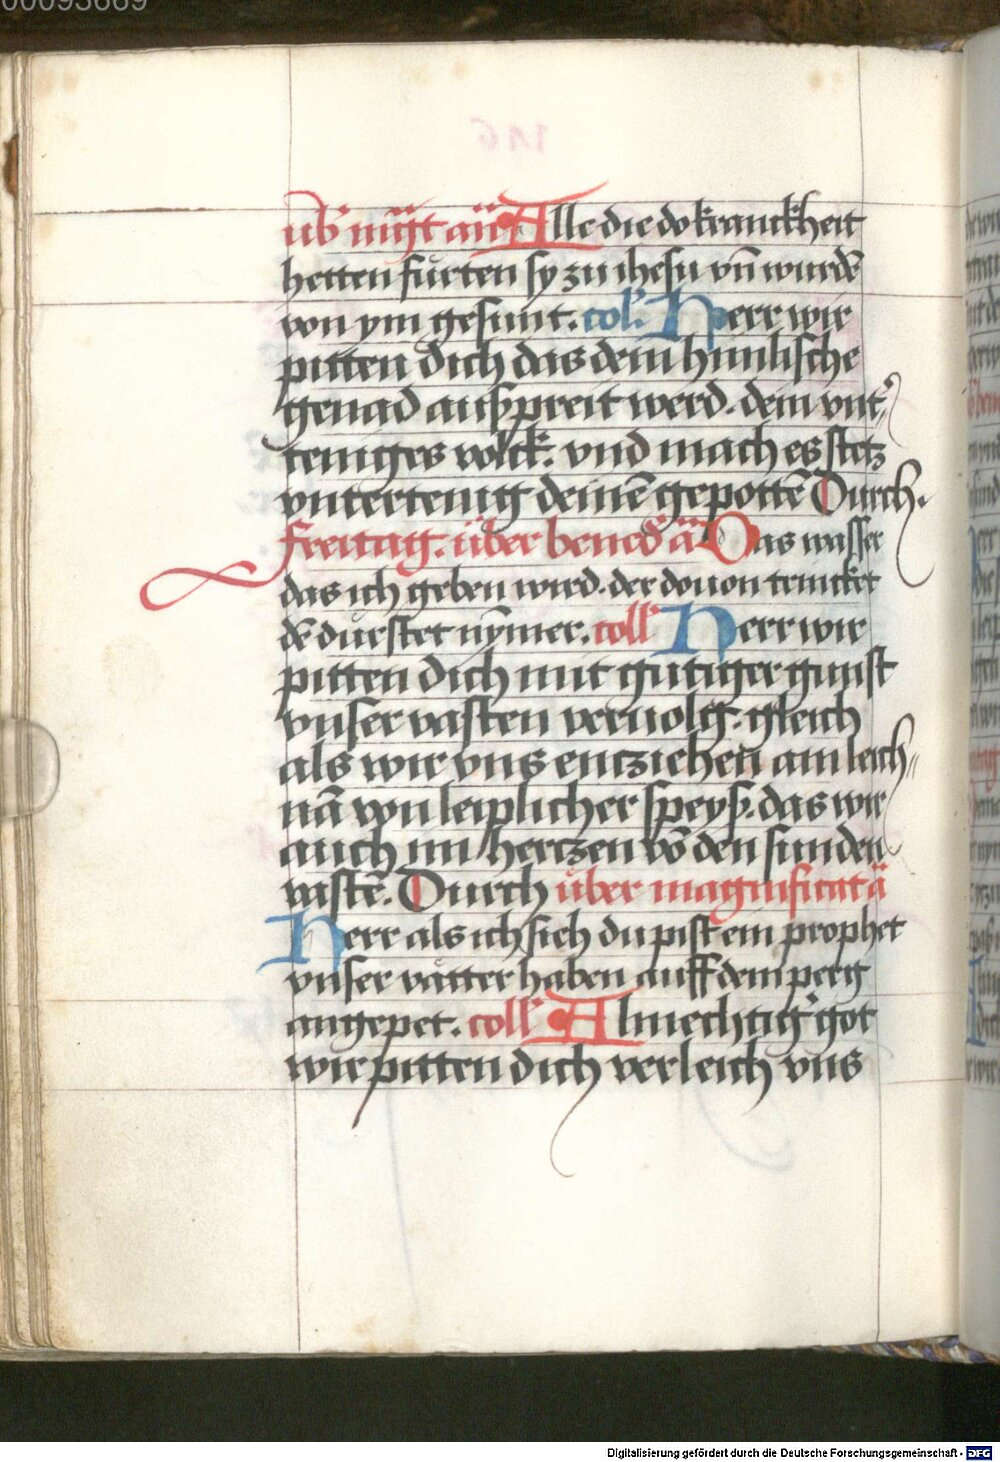 00093669
ub' mgt añ Alle die do kranckheit
hetten fürten sy zu ihesu vn̄ wurdē
von ym gesunt. coll' Herr wir
pitten dich das dein himlische
genad ausspreit werd. dein vnt'
teniges volck. vnd mach es stetz
vntertenig deinē gepottē Durch.
freitag. über bened' ā Das wasser
das ich geben wird. der douon trincket
dē dürstet nȳmer. coll' Herr wir
pitten dich mit gütiger gunst
vnser vasten veruolg. gleich
als wir vns entziehen am leich//
nā von leiplicher speyß. das wir
auch im hertzen vō den sunden
vastē. Durch über magnificat ā
Herr als ich sich du pist ein prophet
vnser vätter haben auff dem perg
angepet. coll' Almechtig' got
wir pitten dich verleich vns
Digitalisierung gefördert durch die Deutsche Forschungsgemeinschaft - DFG